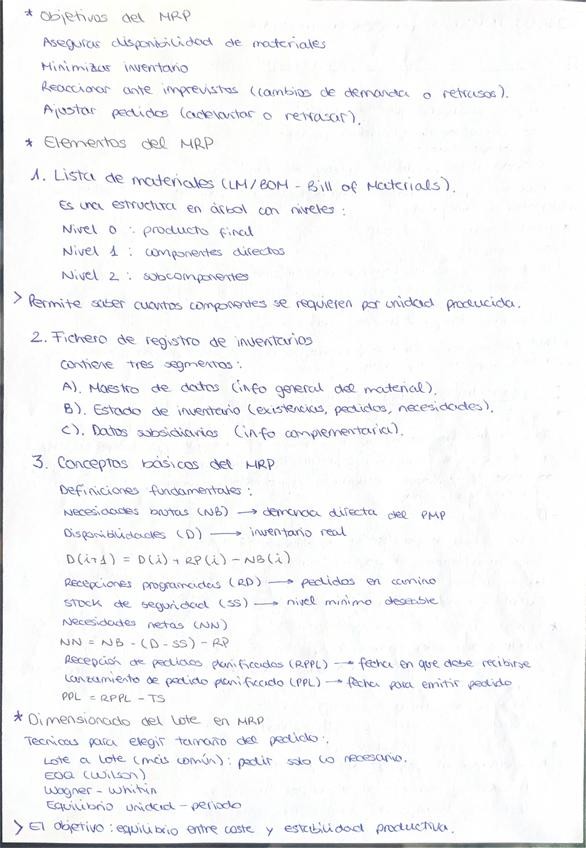 * Objetivos del MRP
Asegurar disponibilidad de materiales
Minimizar inventario
Reaccionar ante imprevistos (cambios de demanda o retrasos).
Ajustar pedidos (adelantar o retrasar).
* Elementos del MRP
1. Lista de materiales (LM/BOM - Bill of Materials).
Es una estructura en árbol con niveles:
Nivel 0 : producto final
Nivel 1 : componentes directos
Nivel 2 : subcomponentes
> Permite saber cuantos componentes se requieren por unidad producida.
2. Fichero de registro de inventarios
Contiene tres segmentos:
A). Maestro de datos (info general del material).
B). Estado de inventario (existencias, pedidos, necesidades).
C). Datos subsidiarios (info complementaria).
3. Conceptos básicos del MRP
Definiciones fundamentales:
Necesidades brutas (NB) → demanda directa del PMP
Disponibilidades (D) → inventario real
D(i+1) = D(i) + RP(i) - NB(i)
Recepciones programadas (RD) → pedidos en camino
Stock de seguridad (SS) → nivel minimo deseable
Necesidades netas (NN)
NN = NB - (D - SS) - RP
Recepción de pedidos planificados (RPPL) → fecha en que debe recibirse
Lanzamiento de pedido planificado (PPL) → fecha para emitir pedido
PPL = RPPL - TS
* Dimensionado del lote en MRP
Tecnicas para elegir tamaño del pedido:
Lote a lote (más común): pedir solo lo necesario.
EOQ (Wilson)
Wagner - Whitin
Equilibrio unidad - periodo
> El objetivo: equilibrio entre coste y estabilidad productiva.